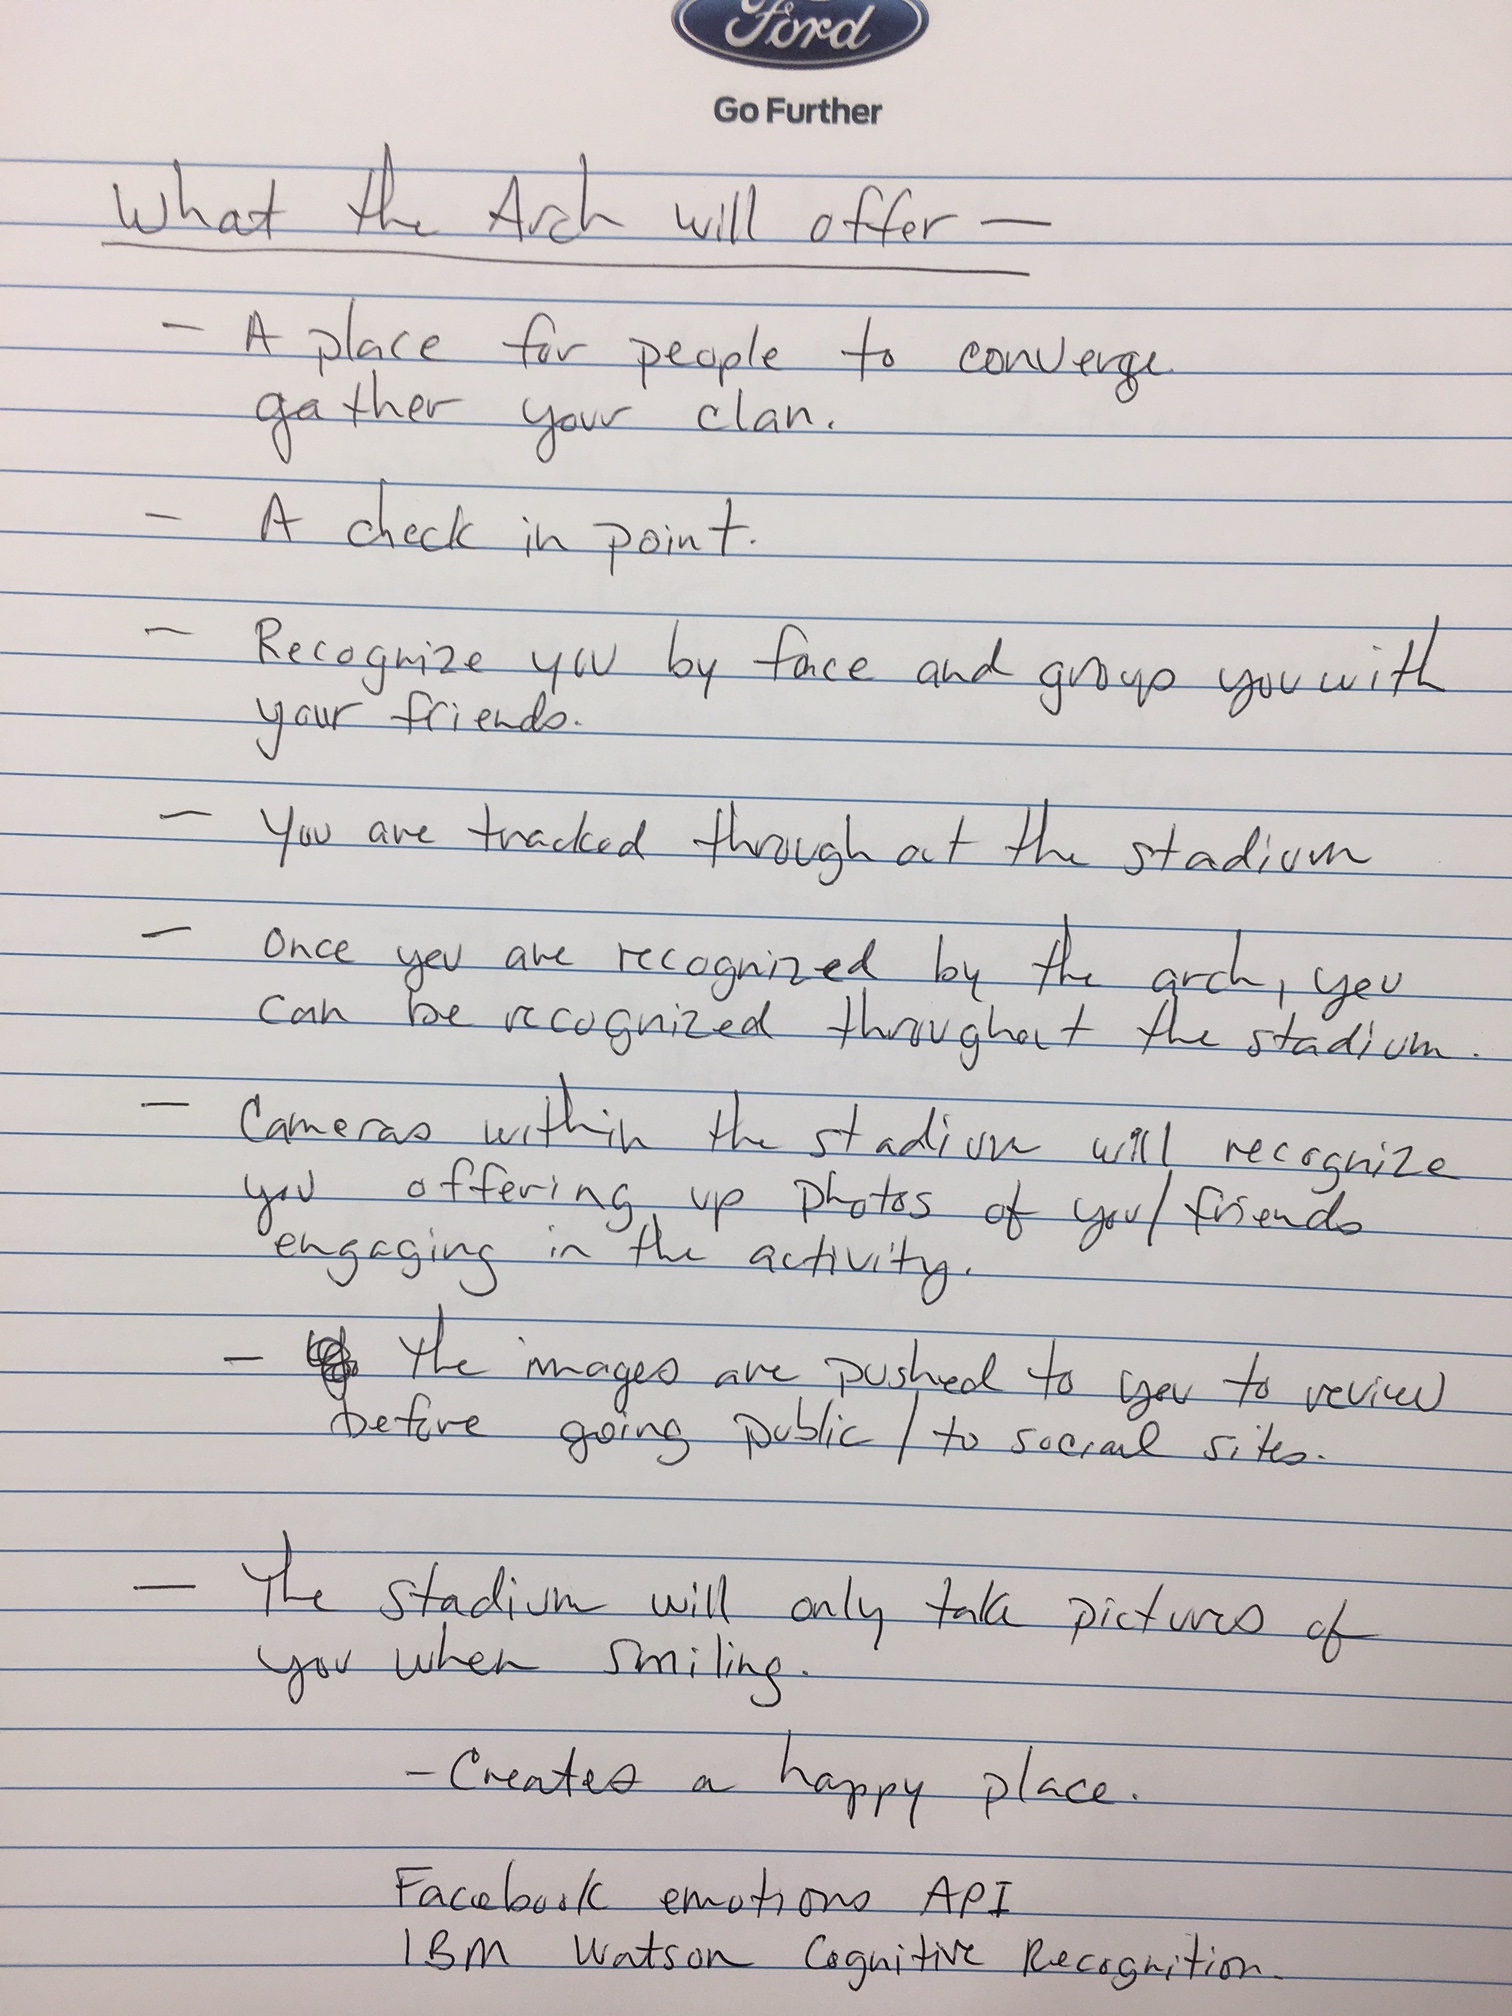 Ford
Go Further
What the Arch will offer —
- A place for people to converge
gather your clan.
- A check in point.
- Recognize you by face and group you with
your friends.
- You are tracked throughout the stadium
- Once you are recognized by the arch, you
can be recognized throughout the stadium.
- Cameras within the stadium will recognize
you offering up photos of you/friends
engaging in the activity.
- The images are pushed to you to review
before going public / to social sites.
- The stadium will only take pictures of
you when smiling.
- Creates a happy place.
Facebook emotions API
IBM Watson Cognitive Recognition.